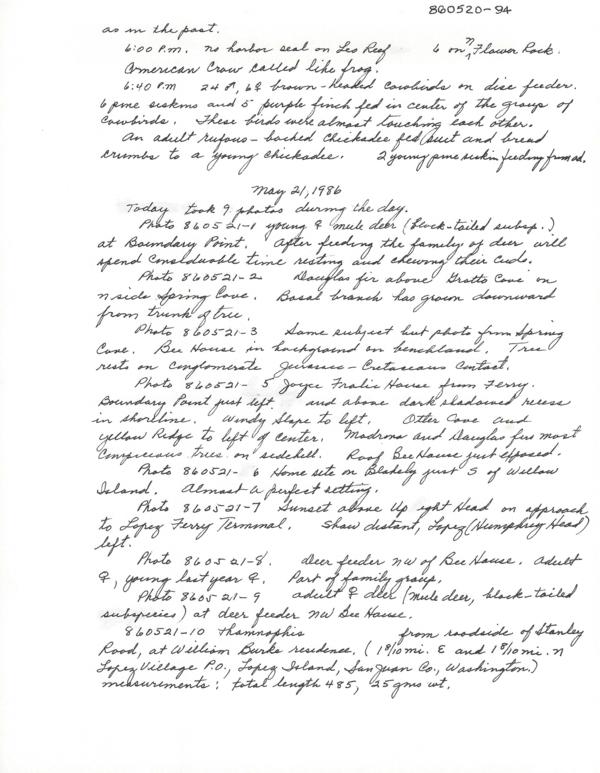 860520-94
as in the past.
6:00 P.M. no harbor seal on Leo Reef 6 on n Flower Rock.
American Crow called like frog.
6:40 P.M 24 ♂, 6♀ brown-headed cowbirds on disc feeder.
6 pine siskins and 5 purple finch fed in center of the group of
cowbirds. These birds were almost touching each other.
An adult rufous-backed chickadee fed suet and bread
crumbs to a young chickadee. 2 young pine siskin feeding from ad.
May 21, 1986
Today took 9 photos during the day.
Photo 860521-1 young ♀ mule deer (black-tailed subsp.)
at Boundary Point. After feeding the family of deer will
spend considerable time resting and chewing their cuds.
Photo 860521-2 Douglas fir above Grotto Cove on
n side Spring Cove. Basal branch has grown downward
from trunk of tree.
Photo 860521-3 Same subject but photo from Spring
Cove. Bee House in background on benchland. Tree
rests on conglomerate Jurassic-Cretaceous Contact.
Photo 860521- 5 Joyce Fralic House from Ferry.
Boundary Point just left and above dark shadowed recess
in shoreline. Windy Slope to left. Otter Cove and
yellow Ridge to left of center. Madrona and Douglas firs most
conspicuous trees on sidehill. Roof Bee House just exposed.
Photo 860521- 6 Home site on Blakely just S of Willow
Island. Almost a perfect setting.
Photo 860521-7 Sunset above Up ight Head on approach
to Lopez Ferry Terminal. Shaw distant, Lopez (Humphrey Head)
left.
Photo 860521-8. deer feeder NW of Bee House. adult
♀, young last year ♀. Part of family group.
Photo 8605 21-9 adult ♀ deer (mule deer, black-tailed
subspecies) at deer feeder NW Bee House.
860521-10 Thamnophis from roadside of Stanley
Road, at William Burke residence. (1 8/10 mi. E and 1 8/10 mi. N
Lopez Village P.O., Lopez Island, San Juan Co., Washington.)
measurements: total length 485, 25 gms wt.